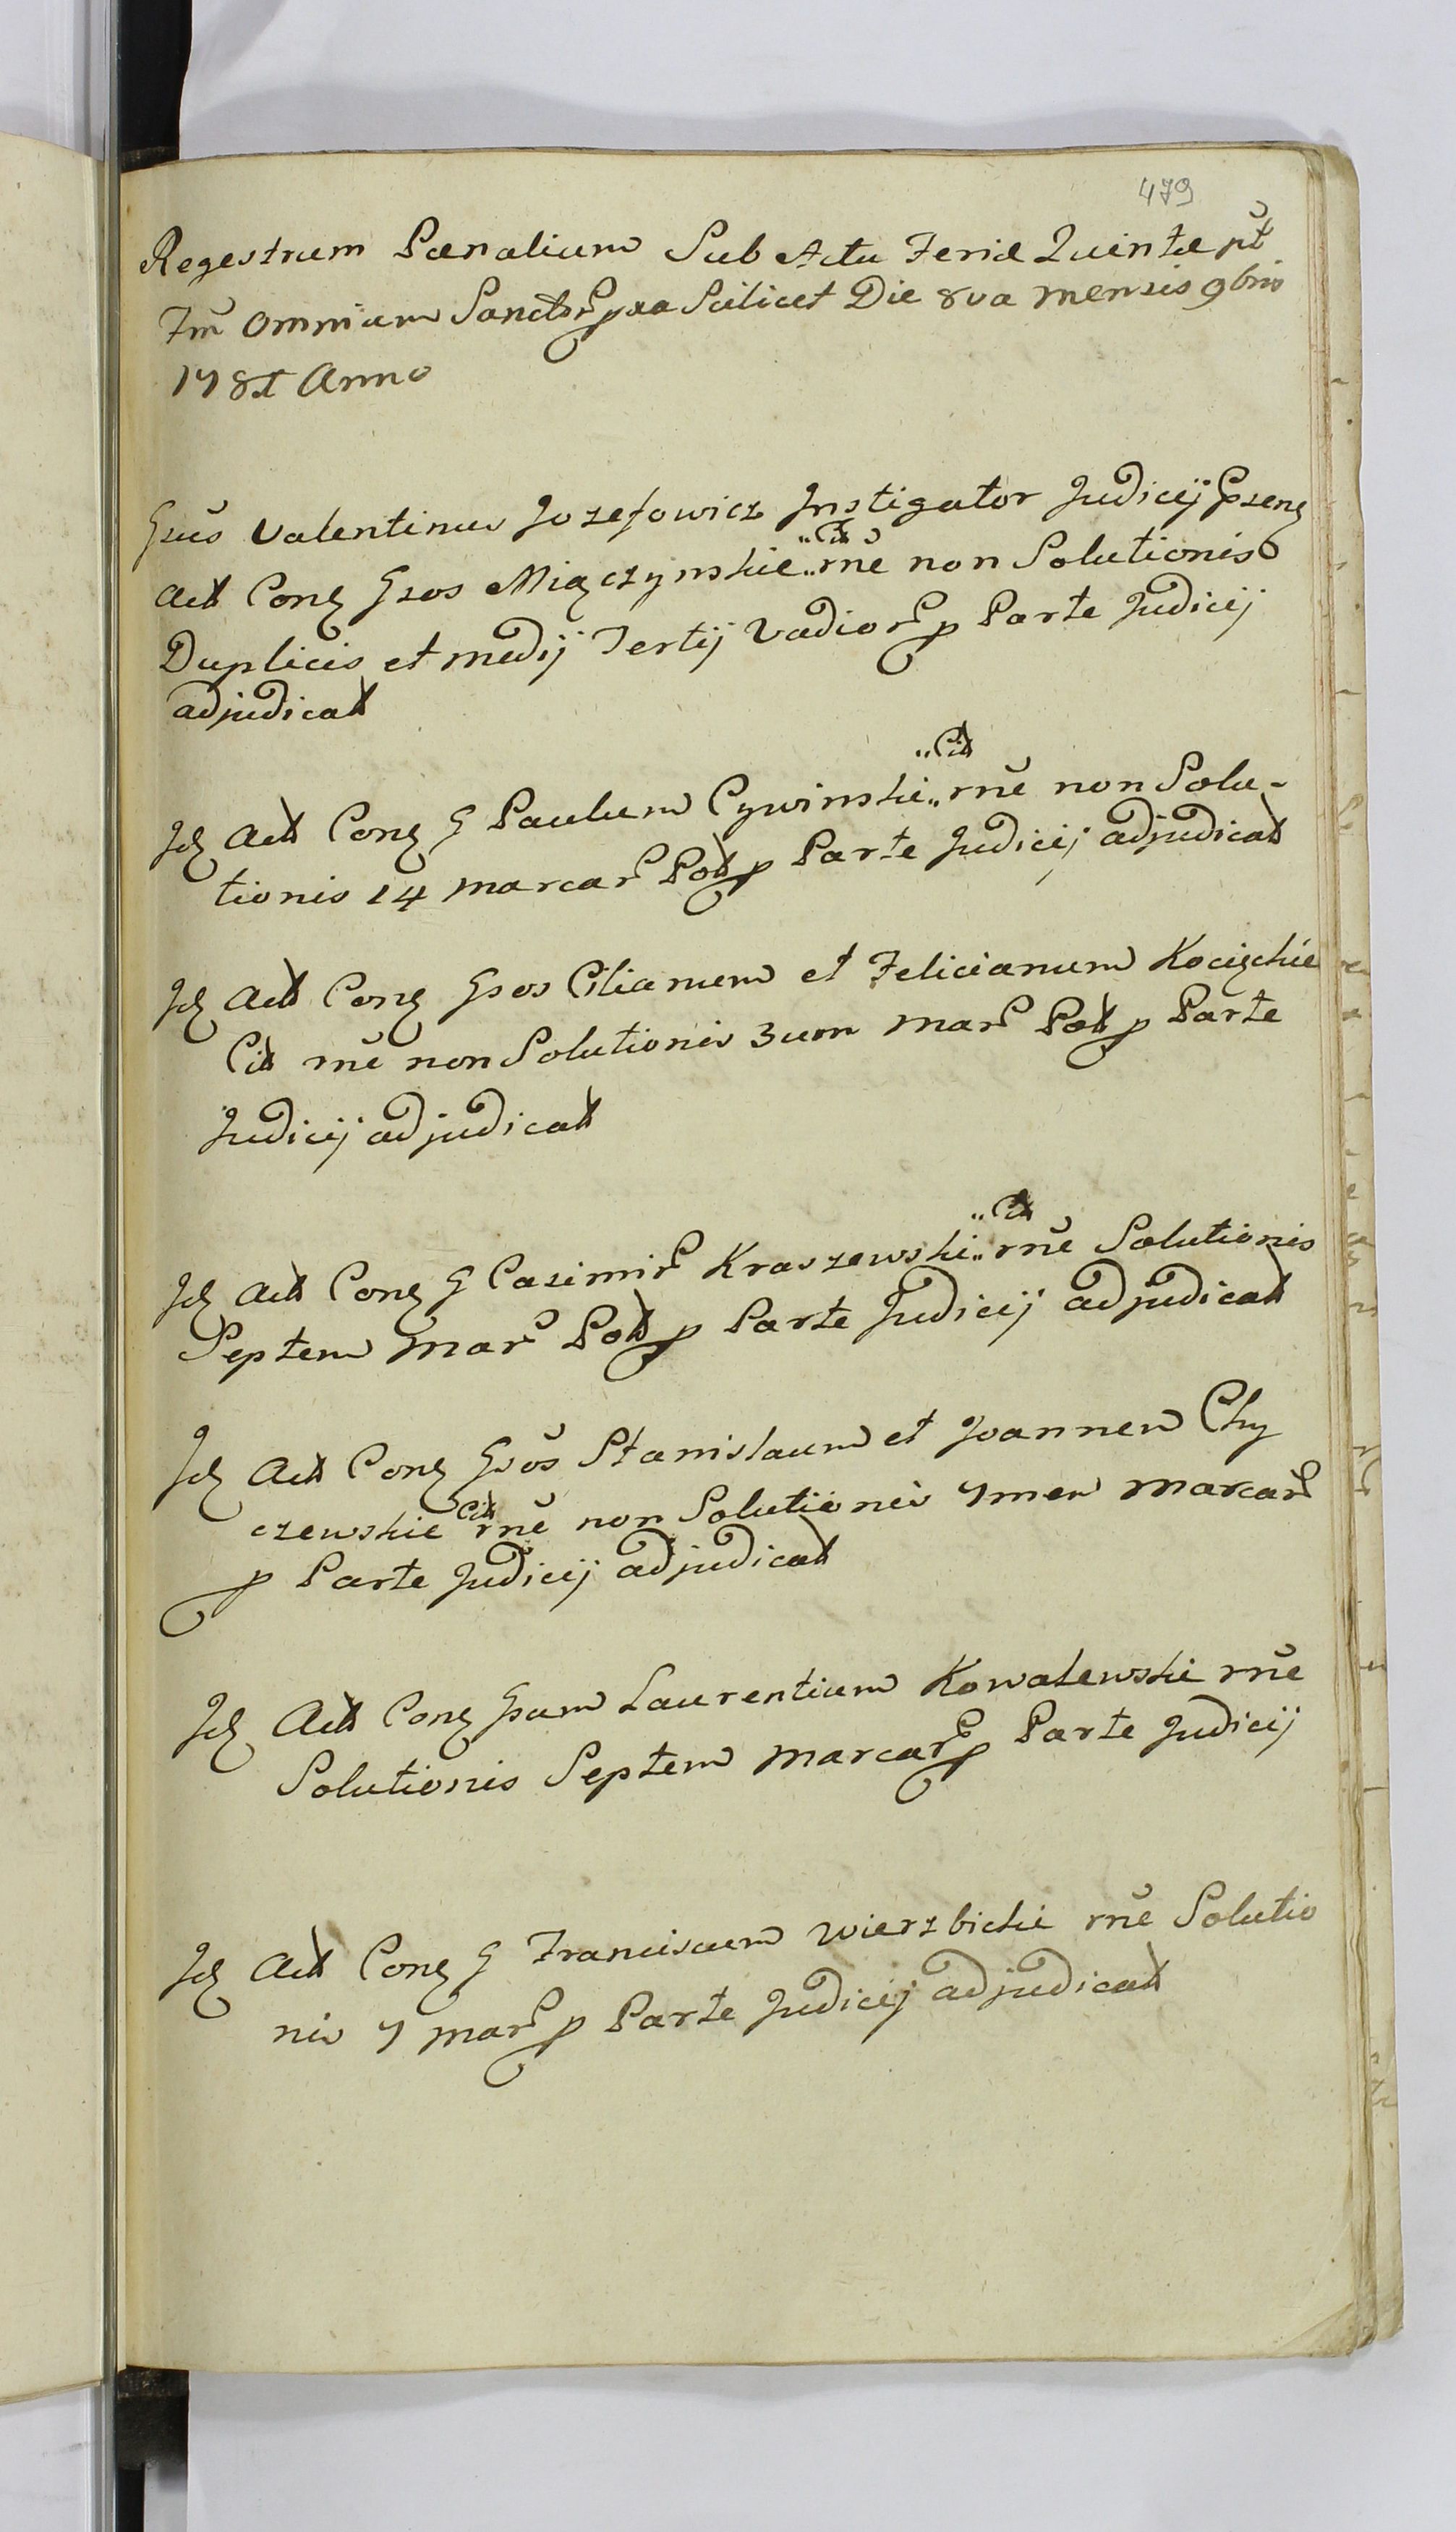 479
Regestrum Pœnalium Sub Actu Feriæ Quintæ pt̃
Fm̃ Omnium Sanctor̃ pxa Scilicet Die 8va mensis 9bris
1781 Anno
Gsũs Valentinus Jozefowicz Jnstigator Judicij Pzeng
Act Cong Gsos Miączynskie Cit rñe non Solutionis
Duplicis et medij Tertij Vadior̃ p Parte Judicij
adjudicat
Jd Act Cong G Paulum Cywinski Cit rñe non Solu-
tionis 14 marcar̃ Pol p Parte Judicij adjudicat
Jd Act Cong Gsos Cilianum et Felicianum Kocięckie
Cit rñe non Solutionis 3um mar̃ Pol p Parte
Judicij adjudicat
Jd Act Cong G Casimir̃ Kraszewski Cit rñe Solutionis
Septem mar̃ Pol p Parte Judicij adjudicat
Jd Act Cong Gsõs Stanislaum et Joannem Chy
czewskie Cit rñe non Solutionis 7mem marcar̃
p Parte Judicij adjudicat
Jd Act Cong Gsum Laurentium Kowalewski rñe
Solutionis Septem marcar̃ p Parte Judicij
Jd Act Cong G Franciscum Wierzbicki rñe Solutio
nis 7 mar̃ p Parte Judicij adjudicat